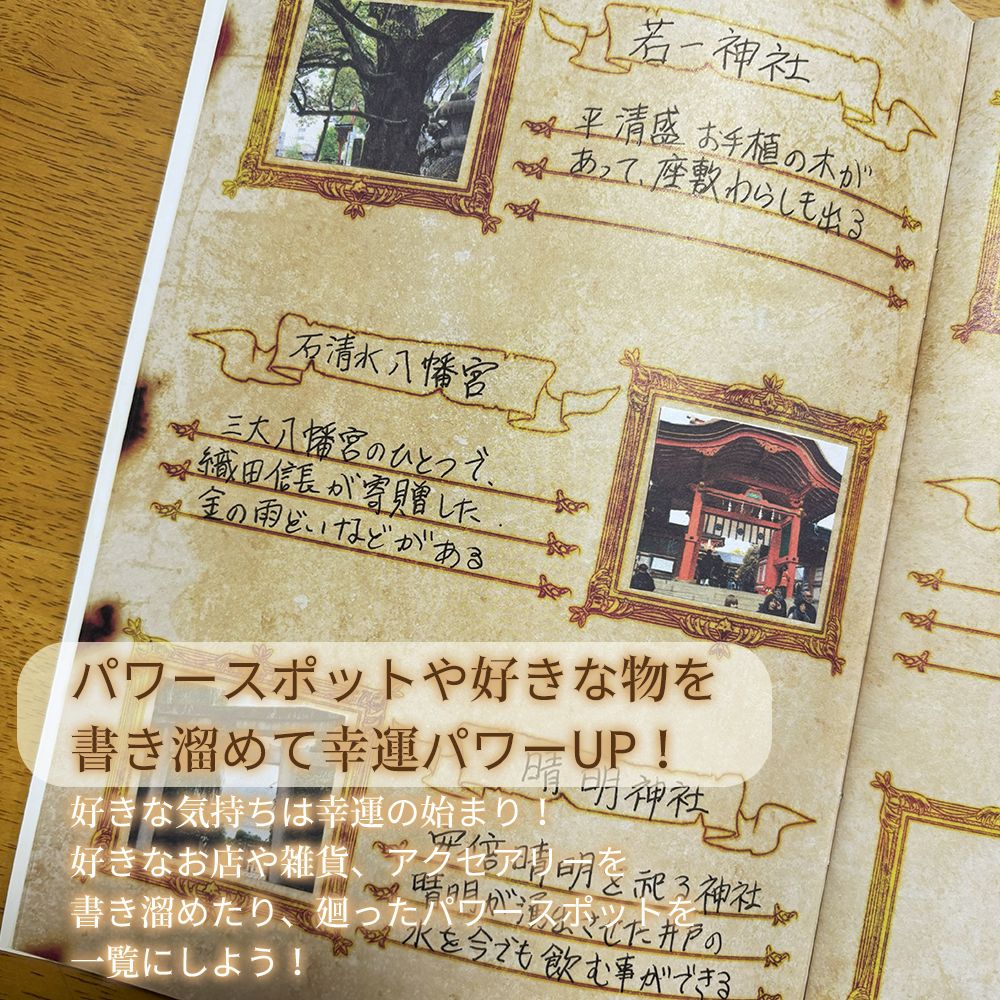 若一神社
平清盛 お手植の木が
あって、座敷わらしも出る
石清水八幡宮
三大八幡宮のひとつで、
織田信長が寄贈した
金の雨どいなどがある
パワースポットや好きな物を
書き溜めて幸運パワーUP！
晴明神社
好きな気持ちは幸運の始まり！
好きなお店や雑貨、アクセアリーを
書き溜めたり、廻ったパワースポットを
一覧にしよう！
安倍晴明を祀る神社
晴明が湧出させた井戸の
水を今でも飲む事ができる